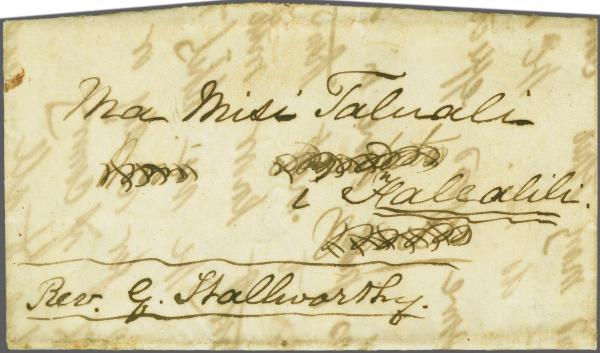 Ma Misi Taluali
i Falealili.
Rev. G. Stallworthy.